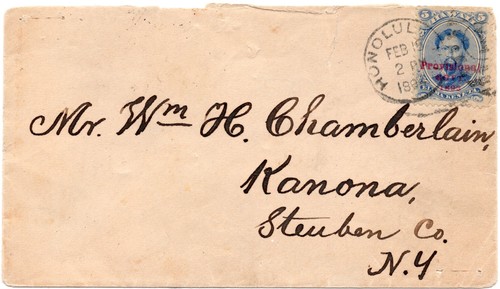 HONOLULU
FEB
2 P
189
5 HAWAII 5
Provisional
Mr. Wm H. Chamberlain,
Kanona,
Steuben Co.
N.Y